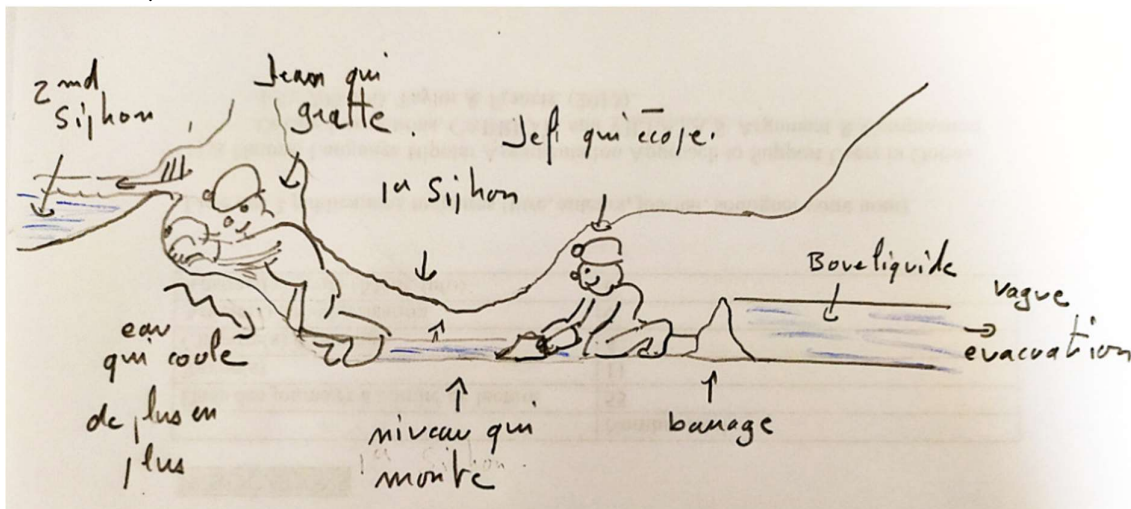 2nd
Siphon
Jean qui
gratte.
1er Siphon
Jeff qui écope.
Boue liquide
vague
évacuation
eau
qui coule
de plus en
plus
niveau qui
monte
barrage